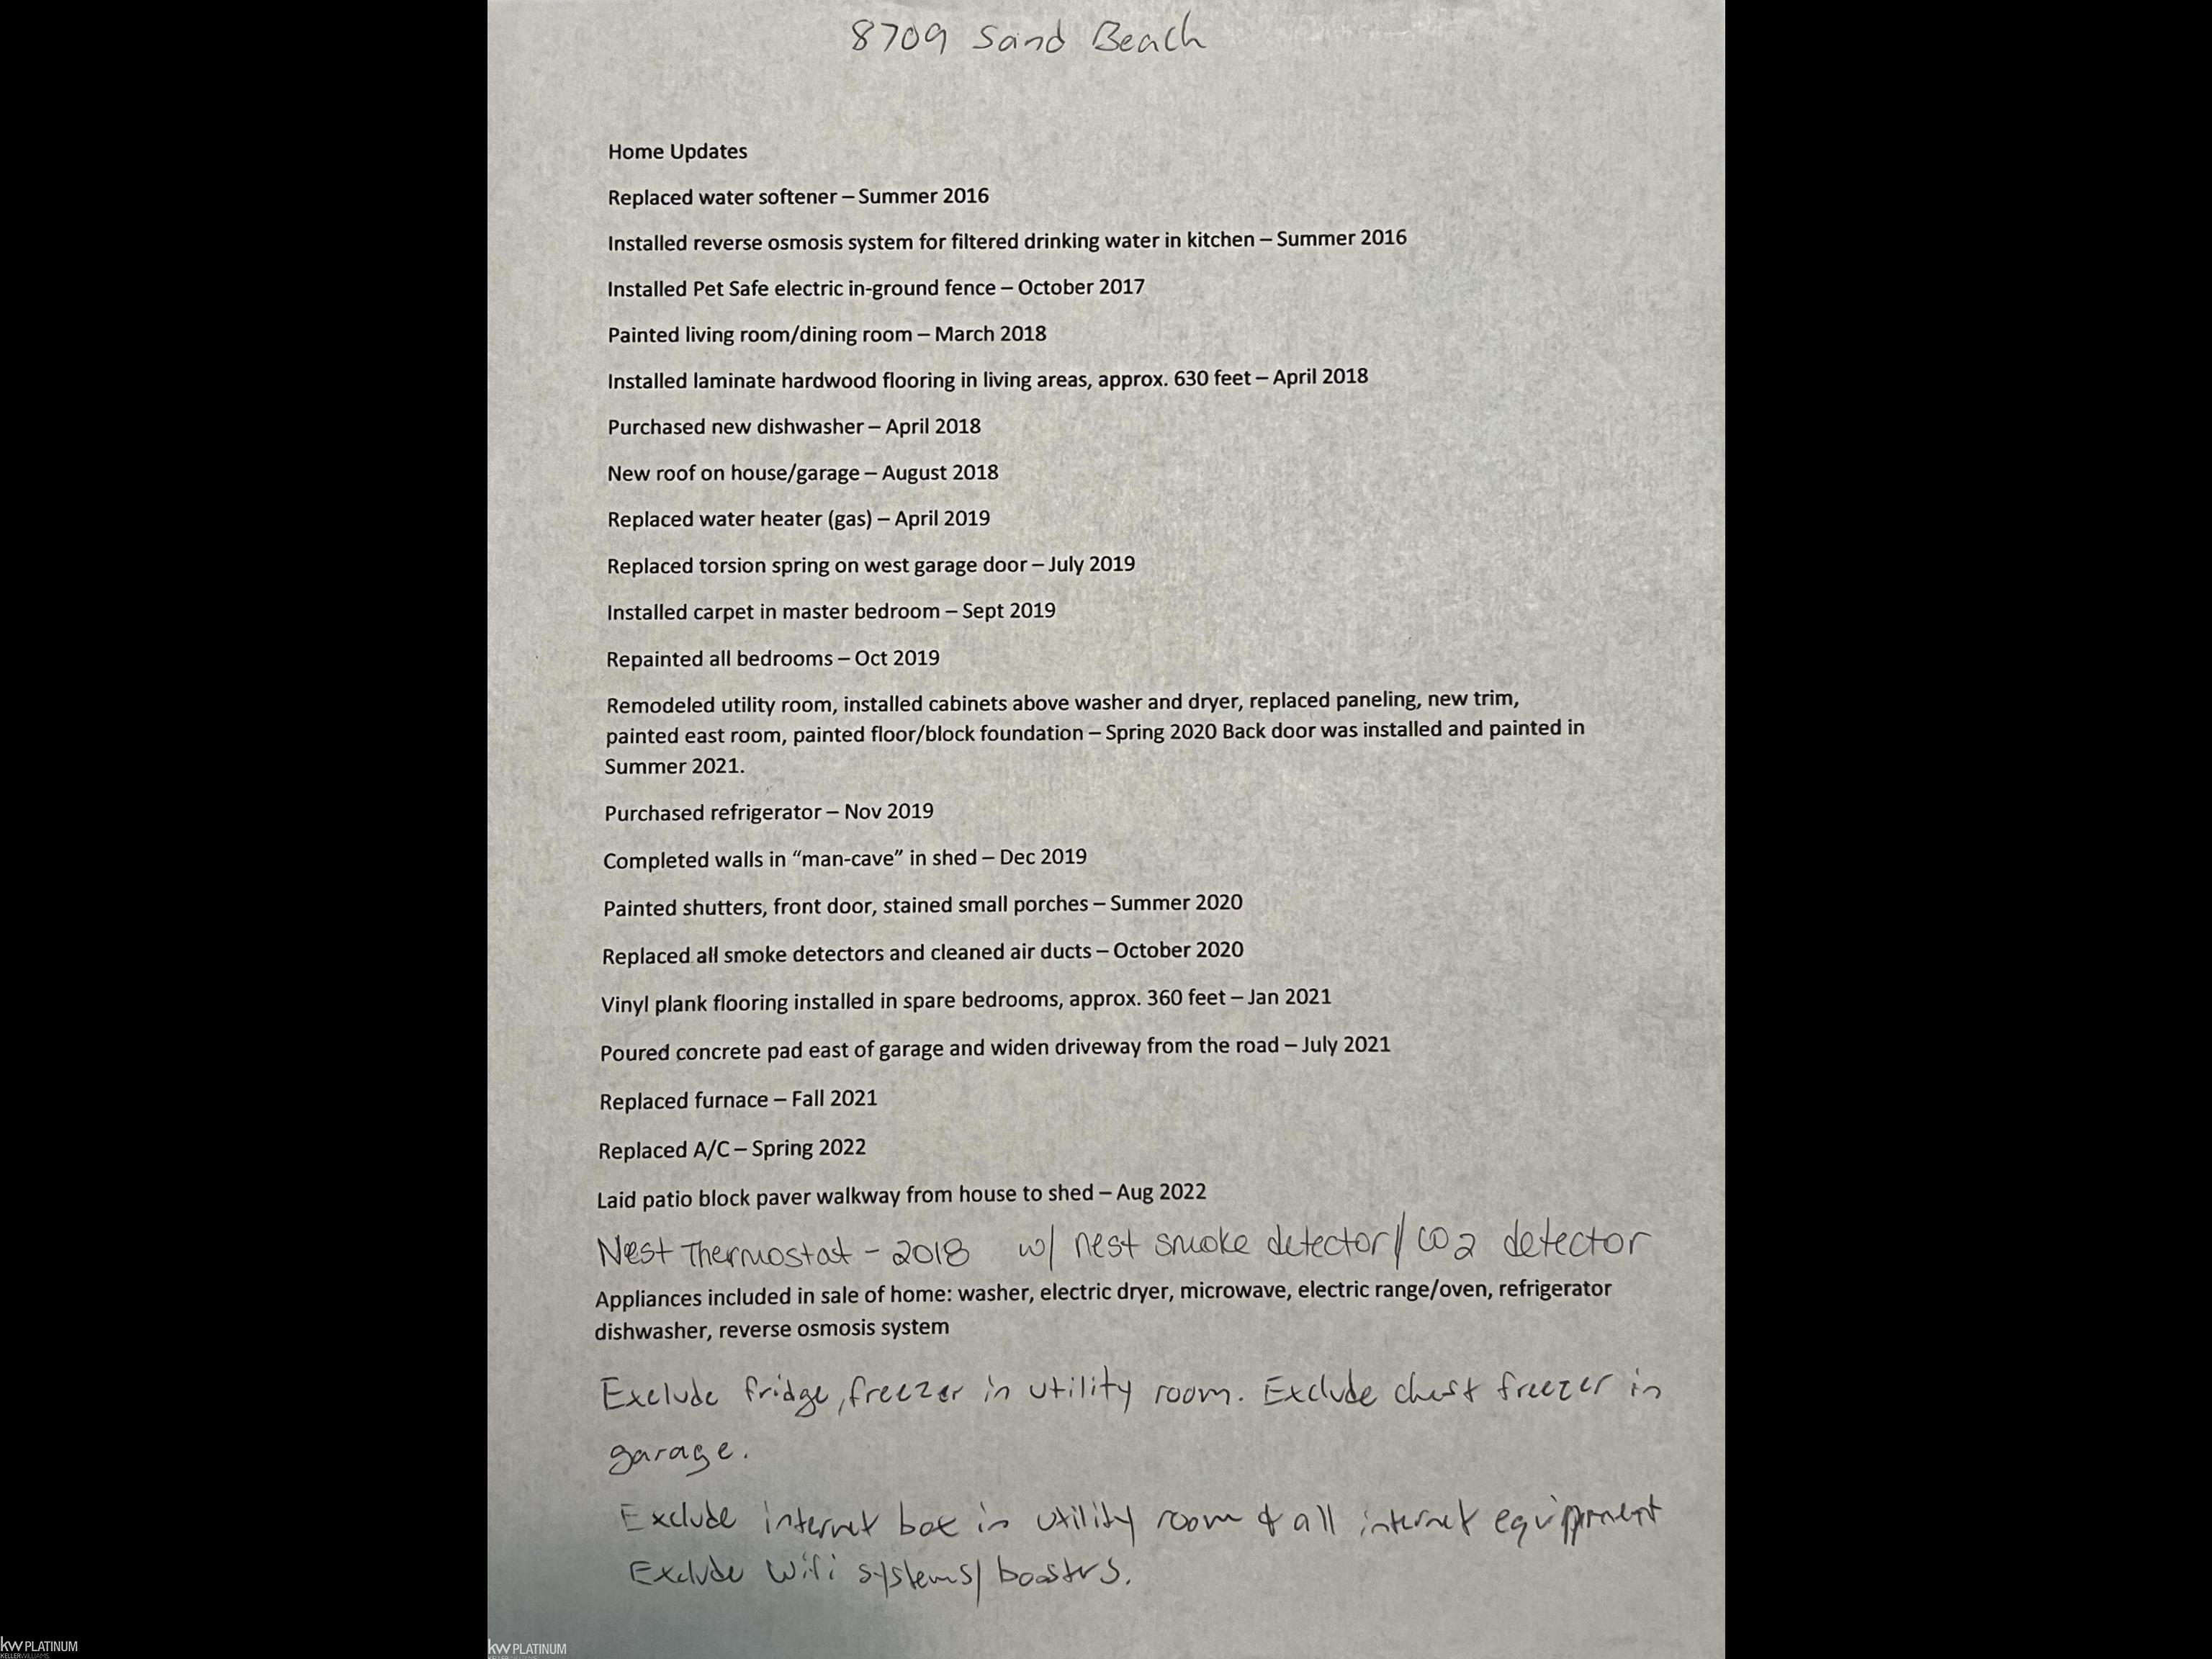 8709 Sand Beach
Home Updates
Replaced water softener – Summer 2016
Installed reverse osmosis system for filtered drinking water in kitchen – Summer 2016
Installed Pet Safe electric in-ground fence – October 2017
Painted living room/dining room – March 2018
Installed laminate hardwood flooring in living areas, approx. 630 feet – April 2018
Purchased new dishwasher – April 2018
New roof on house/garage – August 2018
Replaced water heater (gas) – April 2019
Replaced torsion spring on west garage door – July 2019
Installed carpet in master bedroom – Sept 2019
Repainted all bedrooms – Oct 2019
Remodeled utility room, installed cabinets above washer and dryer, replaced paneling, new trim,
painted east room, painted floor/block foundation – Spring 2020 Back door was installed and painted in
Summer 2021.
Purchased refrigerator – Nov 2019
Completed walls in “man-cave” in shed – Dec 2019
Painted shutters, front door, stained small porches – Summer 2020
Replaced all smoke detectors and cleaned air ducts – October 2020
Vinyl plank flooring installed in spare bedrooms, approx. 360 feet – Jan 2021
Poured concrete pad east of garage and widen driveway from the road – July 2021
Replaced furnace – Fall 2021
Replaced A/C – Spring 2022
Laid patio block paver walkway from house to shed – Aug 2022
Nest Thermostat - 2018 w/ nest smoke detector/ CO2 detector
Appliances included in sale of home: washer, electric dryer, microwave, electric range/oven, refrigerator
dishwasher, reverse osmosis system
Exclude fridge, freezer in utility room. Exclude chest freezer in
garage.
Exclude internet box in utility room & all internet equippment
Exclude Wifi systems/ boosters.
kw PLATINUM
KELLERWILLIAMS
kw PLATINUM
KELLERWILLIAMS